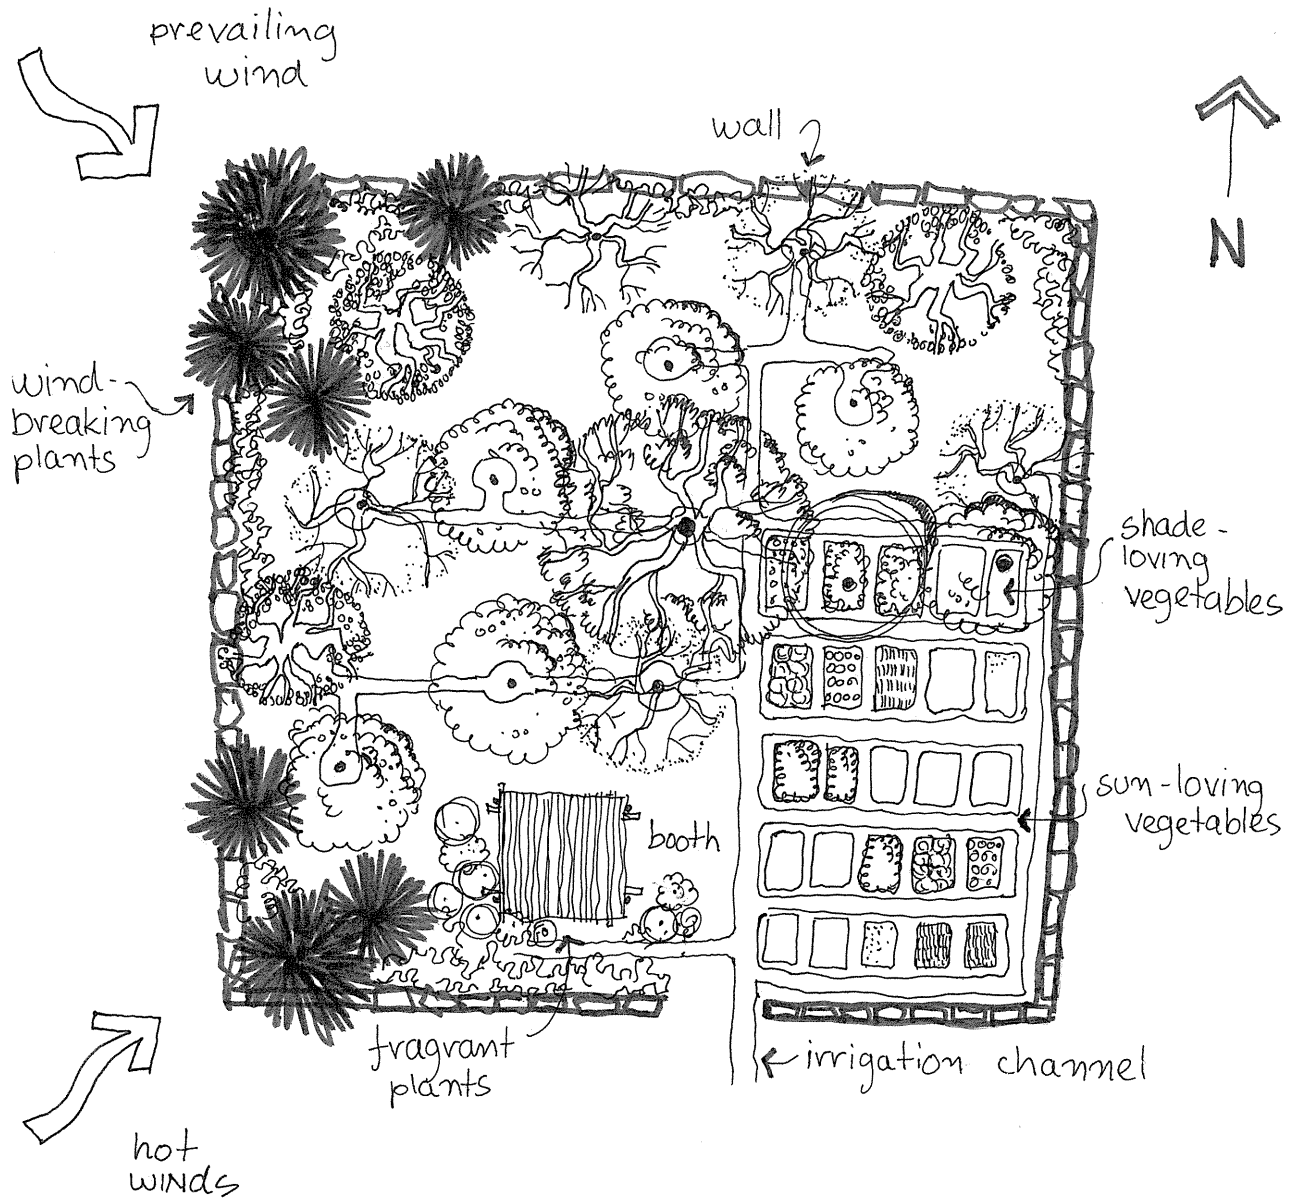 prevailing
wind
wall
N
wind-
breaking
plants
shade-
loving
vegetables
sun-loving
vegetables
booth
fragrant
plants
irrigation channel
hot
WINdS